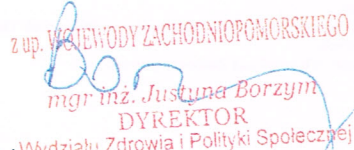 z up. WOJEWODY ZACHODNIOPOMORSKIEGO
mgr inż. Justyna Borzym
DYREKTOR
Wydziału Zdrowia i Polityki Społecznej